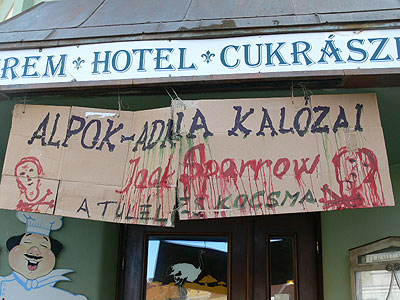 REM ⚜ HOTEL ⚜ CUKRÁSZ
ALPOK-ADRIA KALÓZAI
Jack Sparrow
A TÚLÉLÉS KOCSMA